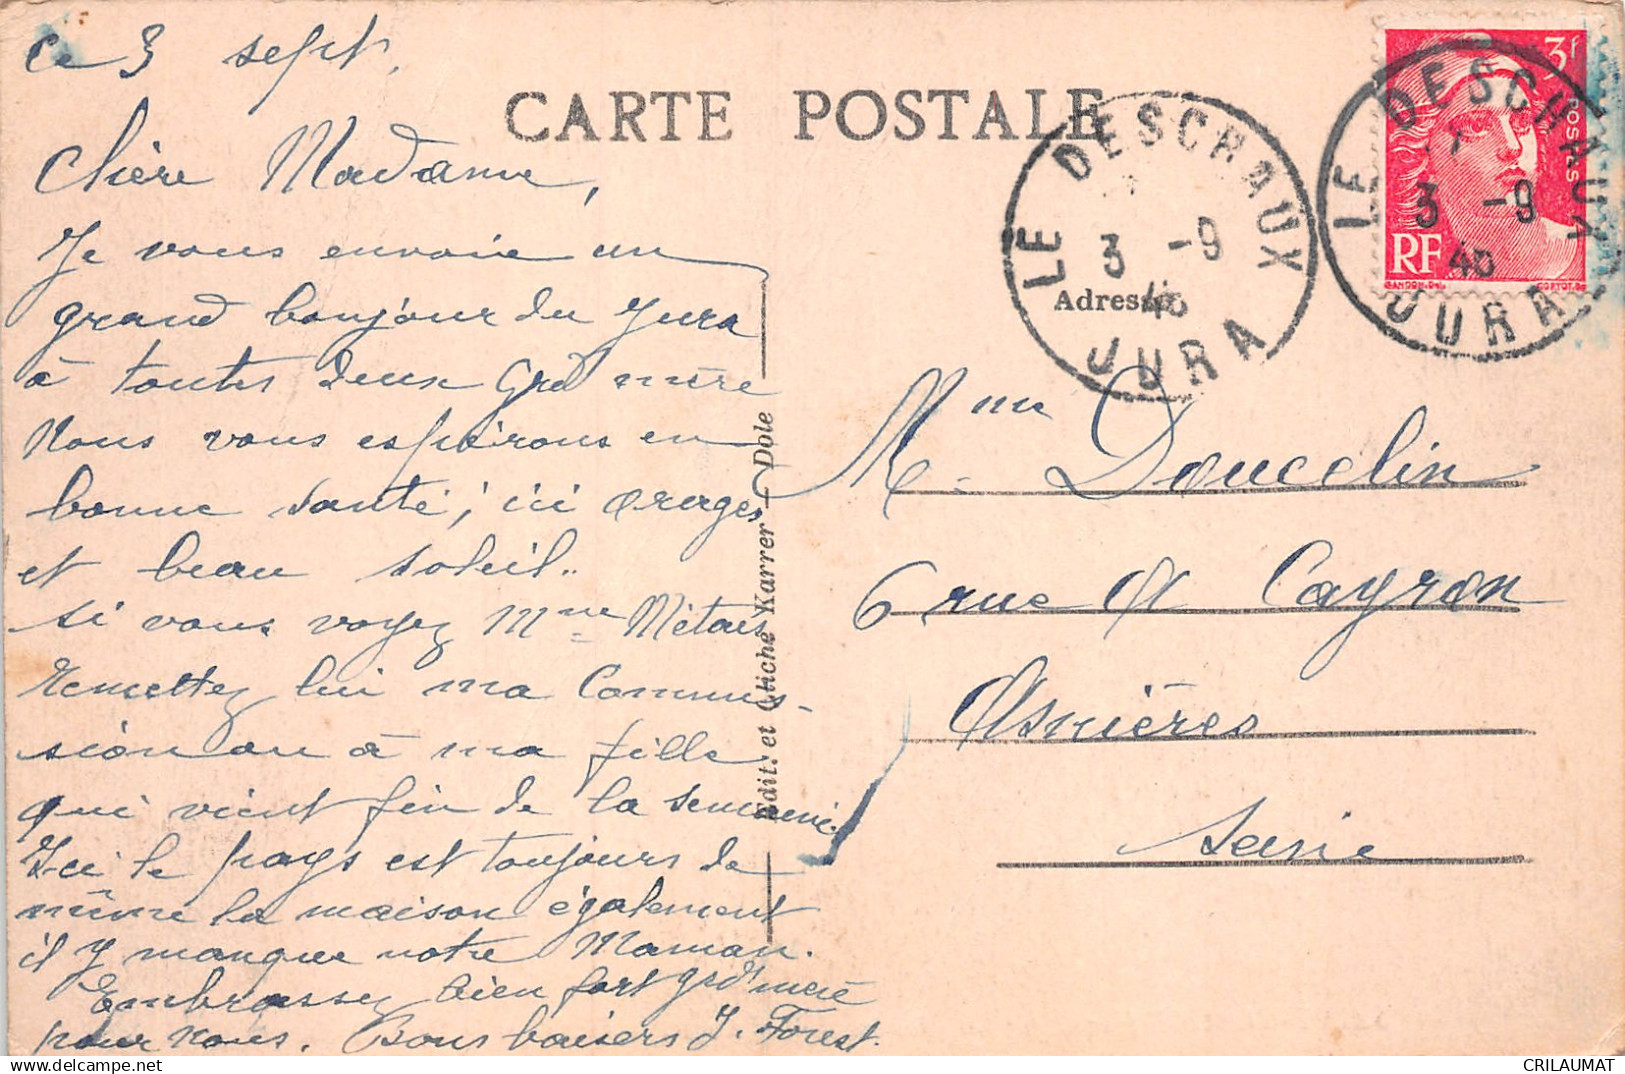 ce 3 sept.
CARTE POSTALE
Chère Madame,
Je vous envoie un
grand bonjour du Jura
à toutes deux Grd mère
Nous vous espérons en
bonne santé, ici orages
et beau soleil..
si vous voyez Mme Métais
Remettez lui ma Commis-
sion ou à ma fille
qui vient fin de la semaine.
Ici le pays est toujours de
même la maison également
il y manque notre Maman.
Embrassez bien fort grd mère
pour nous. Bons baisers J. Forest.
Edit. et Cliché Karrer - Dole
LE DESCHAUX
3 -9
46
JURA
LE DESCHAUX
3 -9
46
JURA
3f
POSTES
RF
GANDON. Del
CORTOT. Sc
Adresse
Mme Doucelin
6 rue Cayron
Asnières
Seine
CRILAUMAT